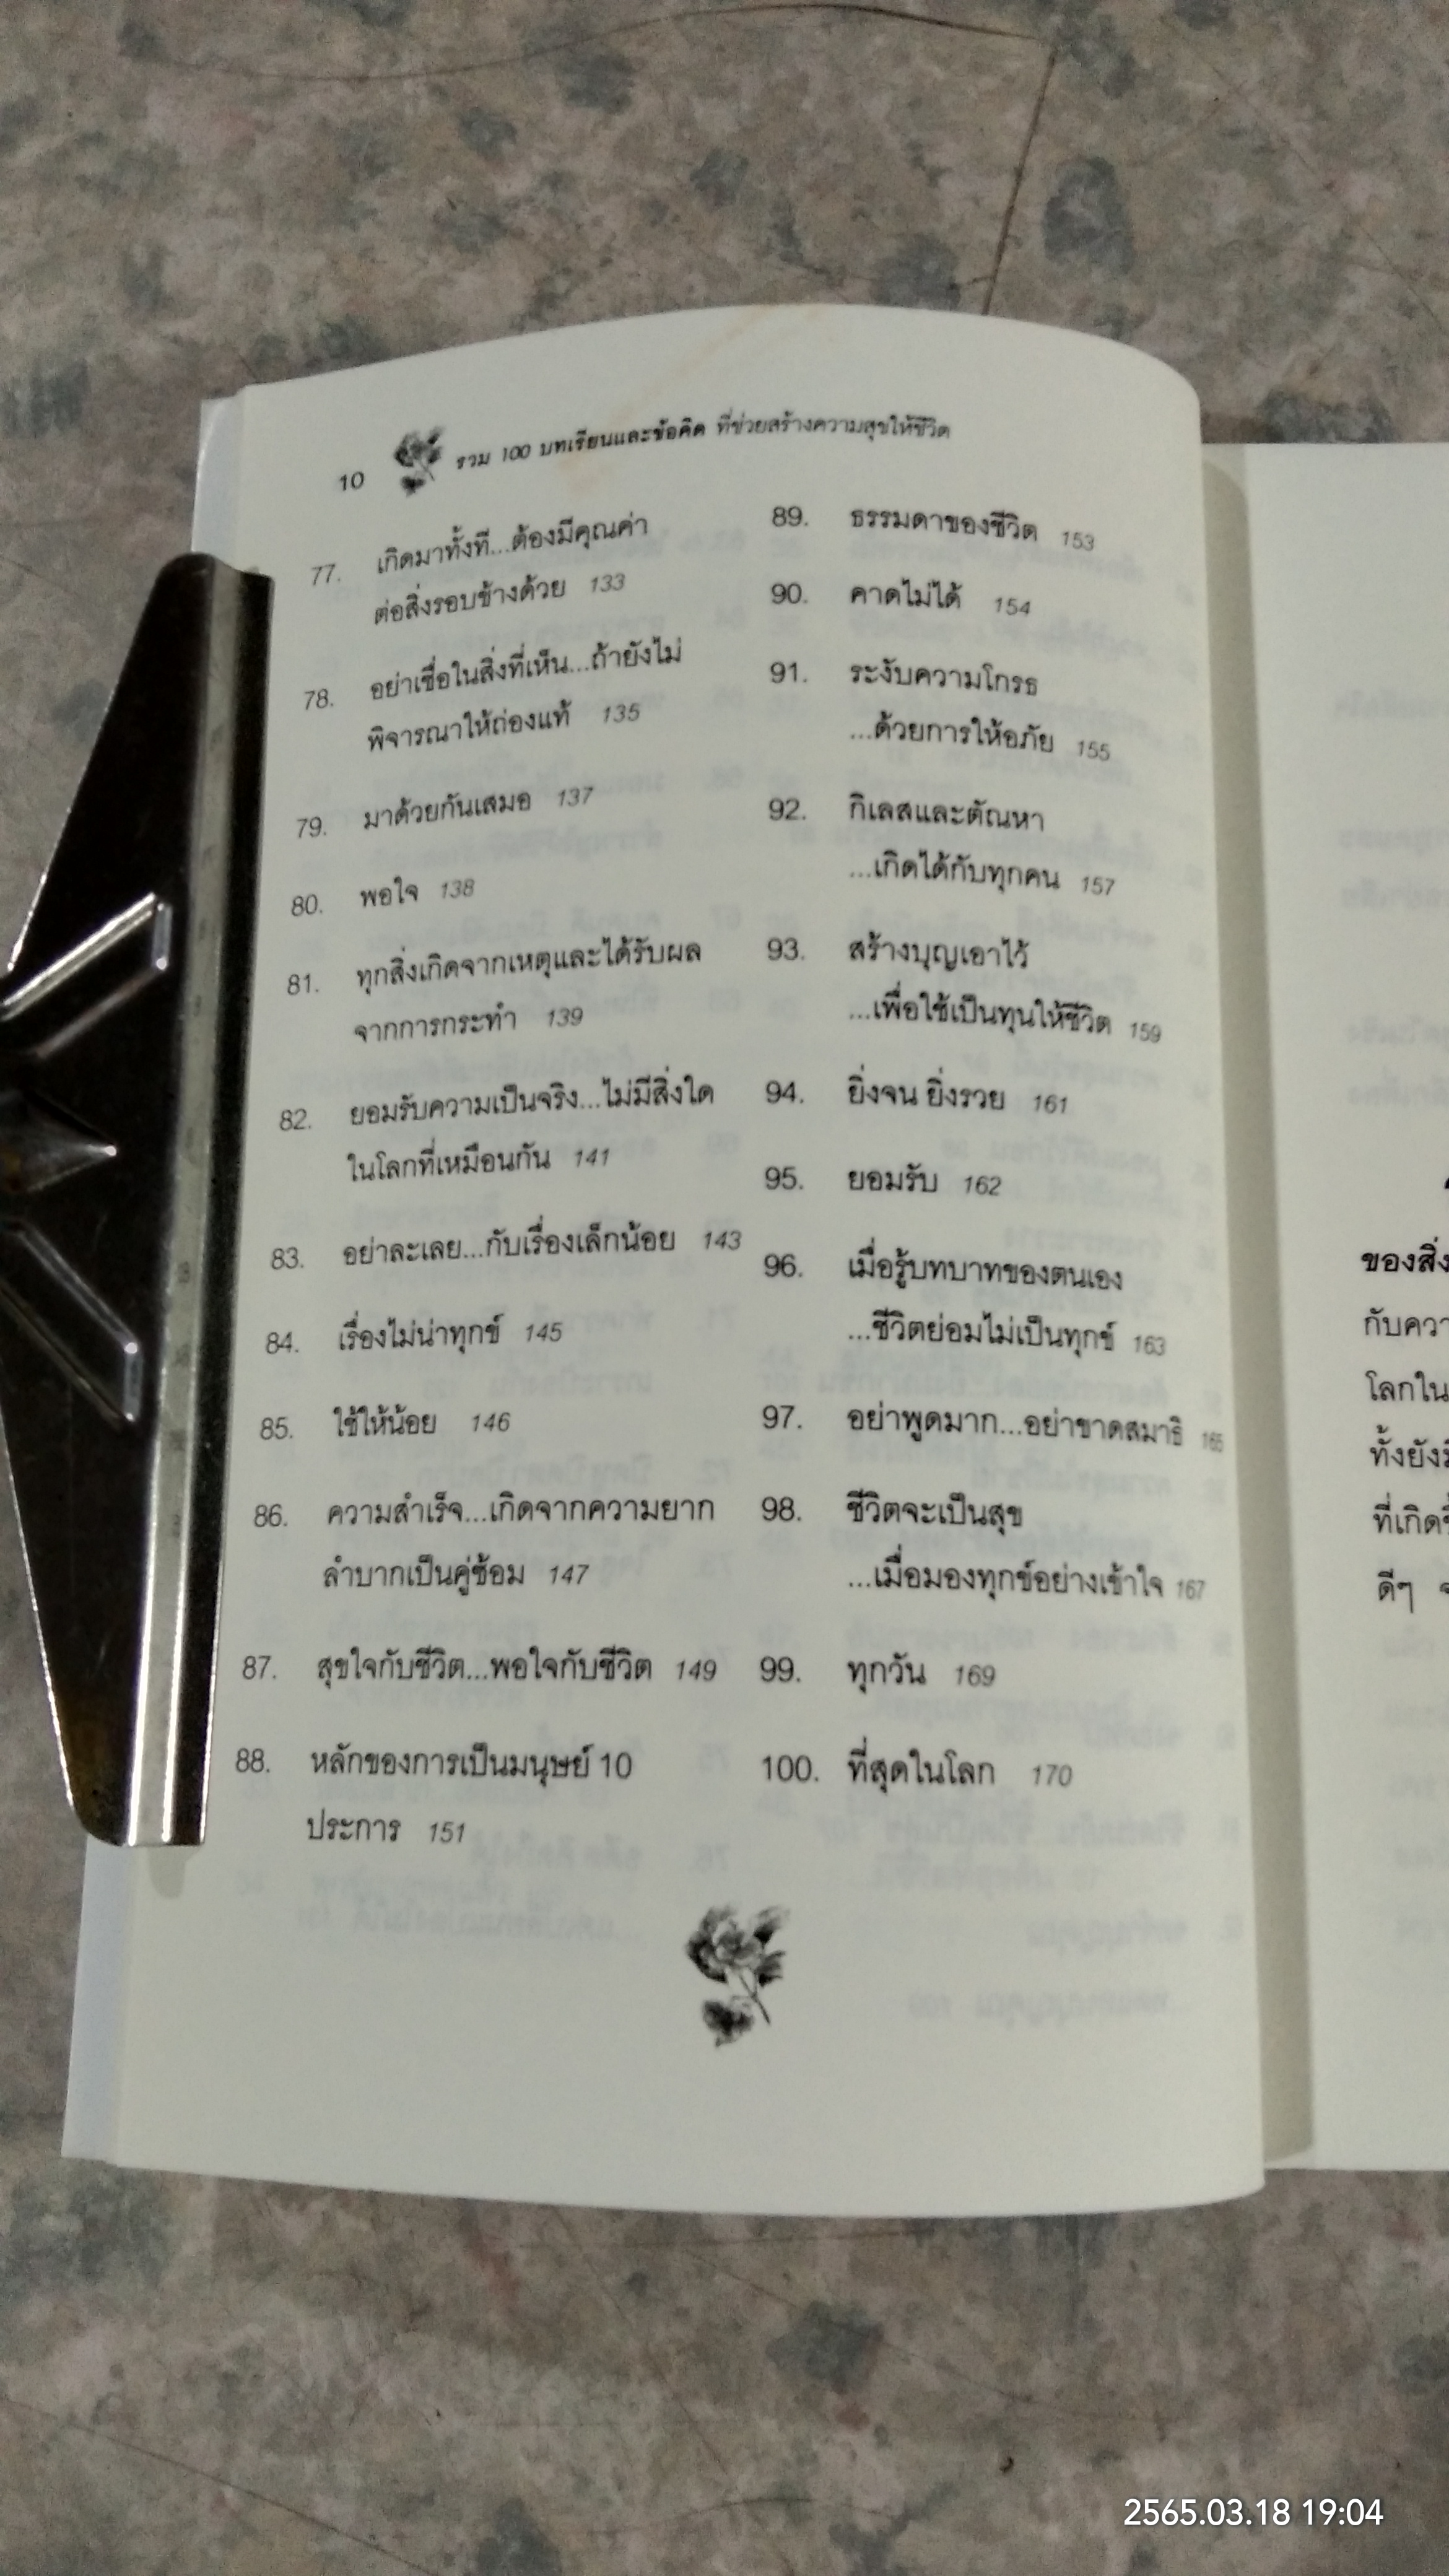 10 รวม 100 บทเรียนและข้อคิด ที่ช่วยสร้างความสุขให้ชีวิต
77. เกิดมาทั้งที...ต้องมีคุณค่า
ต่อสิ่งรอบข้างด้วย 133
78. อย่าเชื่อในสิ่งที่เห็น...ถ้ายังไม่
พิจารณาให้ถ่องแท้ 135
79. มาด้วยกันเสมอ 137
80. พอใจ 138
81. ทุกสิ่งเกิดจากเหตุและได้รับผล
จากการกระทำ 139
82. ยอมรับความเป็นจริง...ไม่มีสิ่งใด
ในโลกที่เหมือนกัน 141
83. อย่าละเลย...กับเรื่องเล็กน้อย 143
84. เรื่องไม่น่าทุกข์ 145
85. ใช้ให้น้อย 146
86. ความสำเร็จ...เกิดจากความยาก
ลำบากเป็นคู่ซ้อม 147
87. สุขใจกับชีวิต...พอใจกับชีวิต 149
88. หลักของการเป็นมนุษย์ 10
ประการ 151
89. ธรรมดาของชีวิต 153
90. คาดไม่ได้ 154
91. ระงับความโกรธ
...ด้วยการให้อภัย 155
92. กิเลสและตัณหา
...เกิดได้กับทุกคน 157
93. สร้างบุญเอาไว้
...เพื่อใช้เป็นทุนให้ชีวิต 159
94. ยิ่งจน ยิ่งรวย 161
95. ยอมรับ 162
96. เมื่อรู้บทบาทของตนเอง
...ชีวิตย่อมไม่เป็นทุกข์ 163
97. อย่าพูดมาก...อย่าขาดสมาธิ 165
98. ชีวิตจะเป็นสุข
...เมื่อมองทุกข์อย่างเข้าใจ 167
99. ทุกวัน 169
100. ที่สุดในโลก 170
ของสิ่ง
กับควา
โลกใน
ทั้งยัง
ที่เกิด
ดีๆ
2565.03.18 19:04